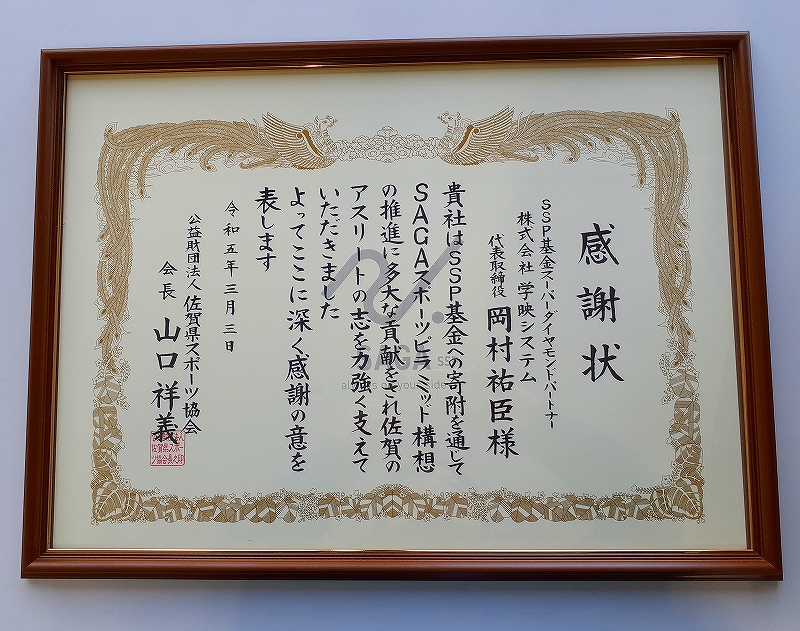 感謝状
SSP基金スーパーダイヤモンドパートナー
株式会社 学映システム
代表取締役 岡村祐臣様
貴社はSSP基金への寄附を通じて
SAGAスポーツピラミッド構想
の推進に多大な貢献をされ佐賀の
アスリートの志を力強く支えて
いただきました
よってここに深く感謝の意を
表します
令和五年三月三日
公益財団法人 佐賀県スポーツ協会
会長 山口祥義
SAGA SS